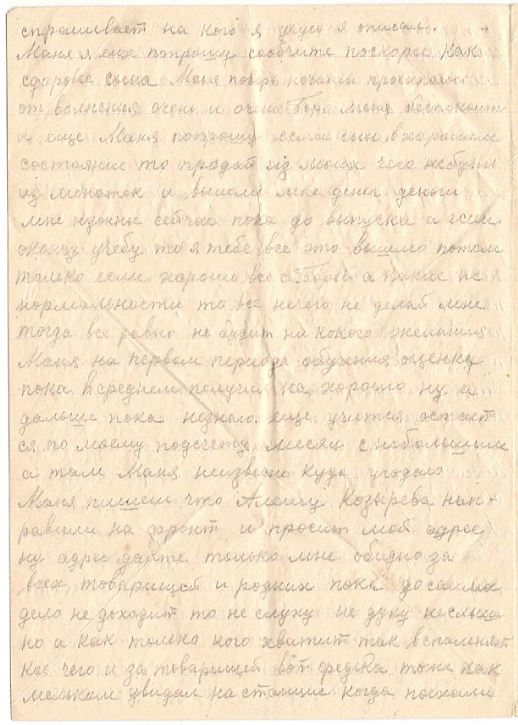 спрашивает на кого я учусь я описывал.
Маня я еще попрошу сообчите поскорее как
здоровье сынка Маня поверь ночами просыпаюсь
от волнения очень и очень Боря меня беспокоит
и еще Маня попрошу если сын в хорошем
состояние то продай из моих чего небудь
из монаток и вышли мне денег деньги
мне нужны сейчас пока до выпуска а если
окончу учебу то я тебе все это вышлю потом
только если хорошо все с Борей а какие не
нормальности то все нечего не делай мне
тогда все равно не будит ни какого желания
Маня на первом периоде обучения оценку
пока в среднем получил на хорошо ну а
дальше пока незнаю еще учится остает
ся по моему подсчету месяц с небольшим
а там Маня неизвесно куда угодаю
Маня пишеш что Алешу Козырева нап-
равили на фронт и просит мой адрес
ну адрес дайте только мне обидно за
всех товарищей и родних пока до самих
дело не доходит то не слуху не духу неслыш
но а как только кого хватит так вспомнят
кое чего и за товарищей вот Федька тоже как
мельком увидал на станцие когда поехали